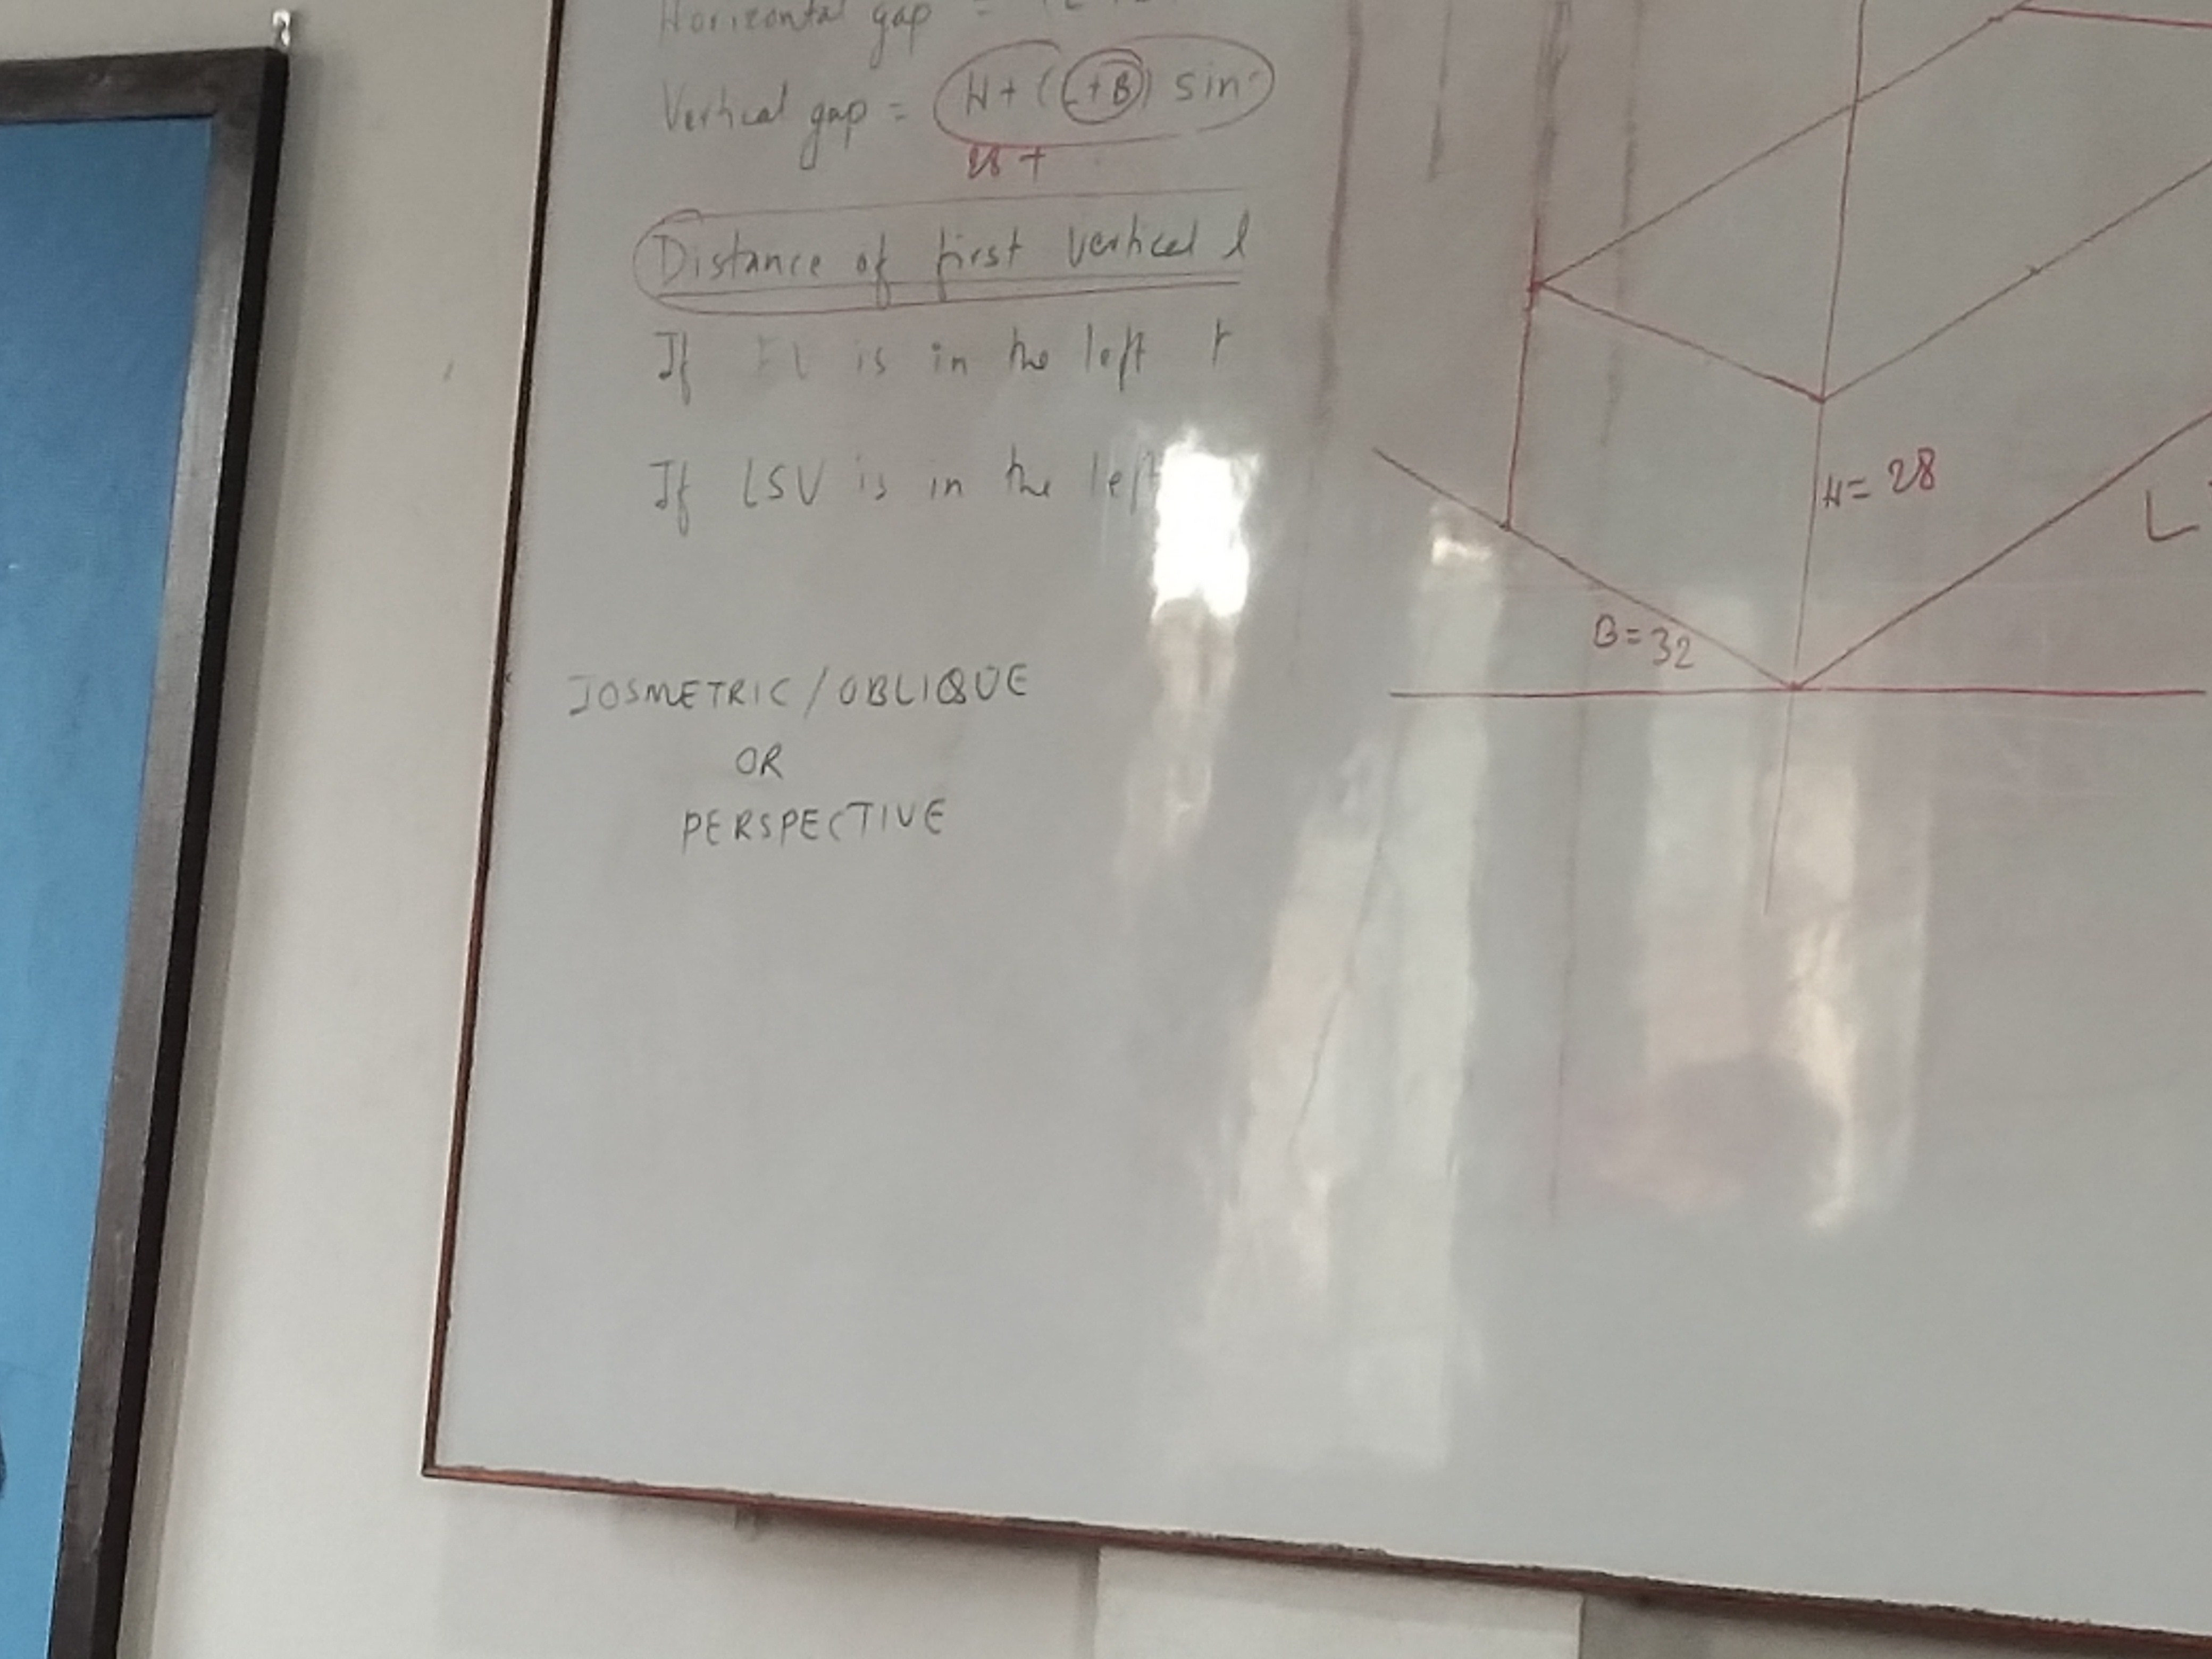 Horizontal gap =
Vertical gap = H + (L+B) sin
28 +
Distance of first vertical l
If is in the left
If LSV is in the left
H = 28
L
B = 32
IOSMETRIC / OBLIQUE
OR
PERSPECTIVE